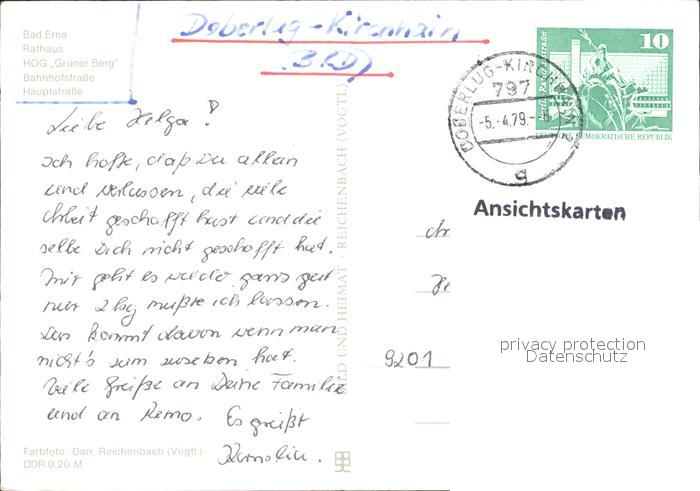 Bad Erna
Rathaus
HOG „Grüner Berg"
Bahnhofstraße
Hauptstraße
Doberlug-Kirchhain
10
DEUTSCHE DEMOKRATISCHE REPUBLIK
DOBERLUG-KIRCHHAIN
797
-5.-4.79.-
g
Liebe Helga!
Ich hoffe, daß Du allein
und verlassen, die viele
Arbeit geschafft hast und die
selbe Dich nicht geschafft hat.
Mir geht es wieder ganz gut
nur 2 kg mußte ich lassen.
Das kommt davon wenn man
nicht's zum zusetzen hat.
Viele Grüße an Deine Familie
und an Remo. Es grüßt
Karnolia.
Ansichtskarten
9201
privacy protection
Datenschutz
BILD UND HEIMAT · REICHENBACH (VOGTL)
Farbfoto: Darr, Reichenbach (Vogtl.)
DDR 0,20 M